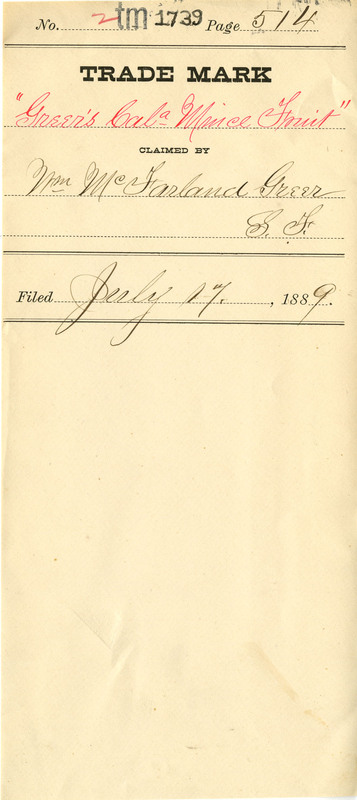 No. 2 tm 1739 Page 514
TRADE MARK
"Greer's Cala Mince Fruit"
CLAIMED BY
Wm McFarland Greer
S. F.
Filed July 17. , 1889.